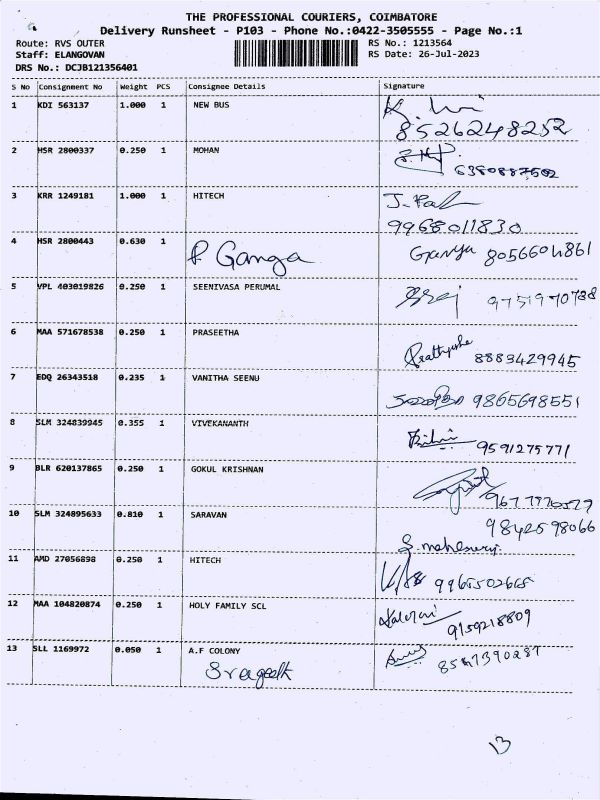 THE PROFESSIONAL COURIERS, COIMBATORE
Delivery Runsheet - P103 - Phone No.:0422-3505555 - Page No.:1
Route: RVS OUTER RS No.: 1213564
Staff: ELANGOVAN RS Date: 26-Jul-2023
DRS No.: DCJB121356401
S No Consignment No Weight PCS Consignee Details Signature
1 KDI 563137 1.000 1 NEW BUS
8526248252
2 HSR 2800337 0.250 1 MOHAN
6380887502
3 KRR 1249181 1.000 1 HITECH
9968011830
4 HSR 2800443 0.630 1 P Ganga Ganga 8056604861
5 VPL 403019826 0.250 1 SEENIVASA PERUMAL
9751970738
6 MAA 571678538 0.250 1 PRASEETHA
8883429945
7 EDQ 26343518 0.235 1 VANITHA SEENU
9865698551
8 SLM 324839945 0.355 1 VIVEKANANTH
9591275771
9 BLR 620137865 0.250 1 GOKUL KRISHNAN
10 SLM 324895633 0.810 1 SARAVAN 9842598066
S. maheswari
11 AMD 27056898 0.250 1 HITECH
9965502665
12 MAA 104820874 0.250 1 HOLY FAMILY SCL
9159218809
13 SLL 1169972 0.050 1 A.F COLONY
13